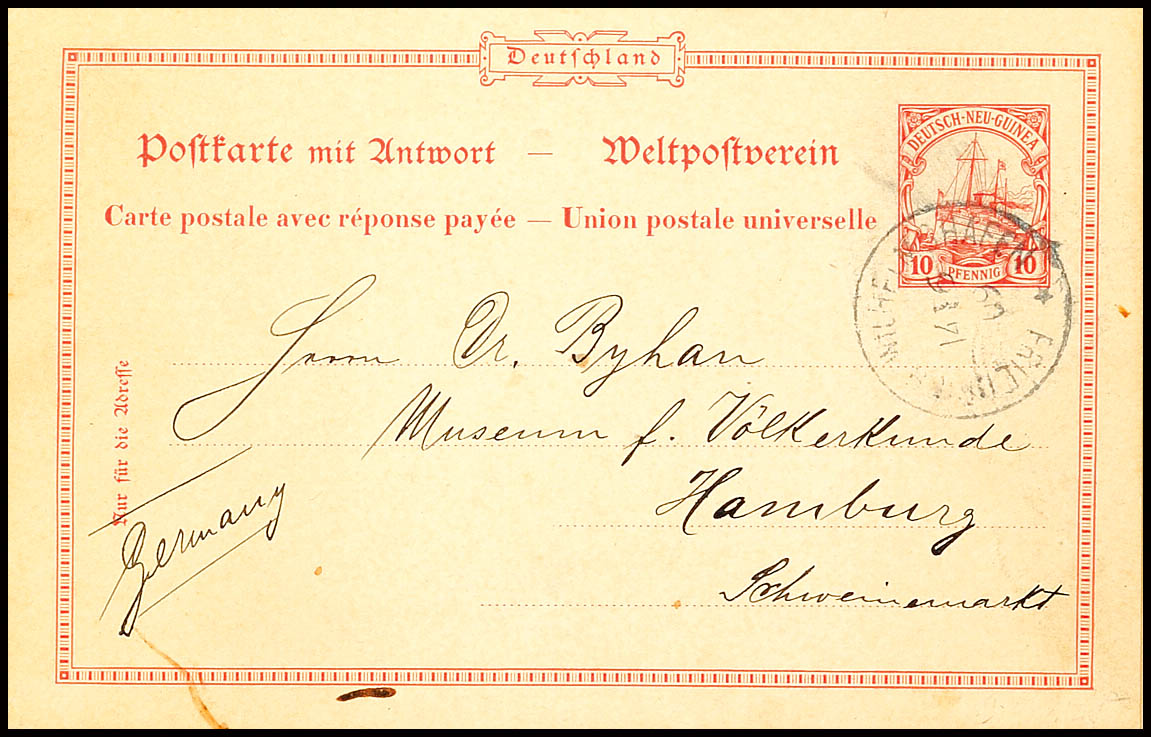 Deutschland
Postkarte mit Antwort — Weltpostverein
Carte postale avec réponse payée — Union postale universelle
DEUTSCH-NEU-GUINEA
10 PFENNIG 10
FRIEDR. WILHELMSHAFEN
Herrn Dr. Byhan
Museum f. Völkerkunde
Hamburg
Schweinemarkt
Nur für die Adresse
Germany